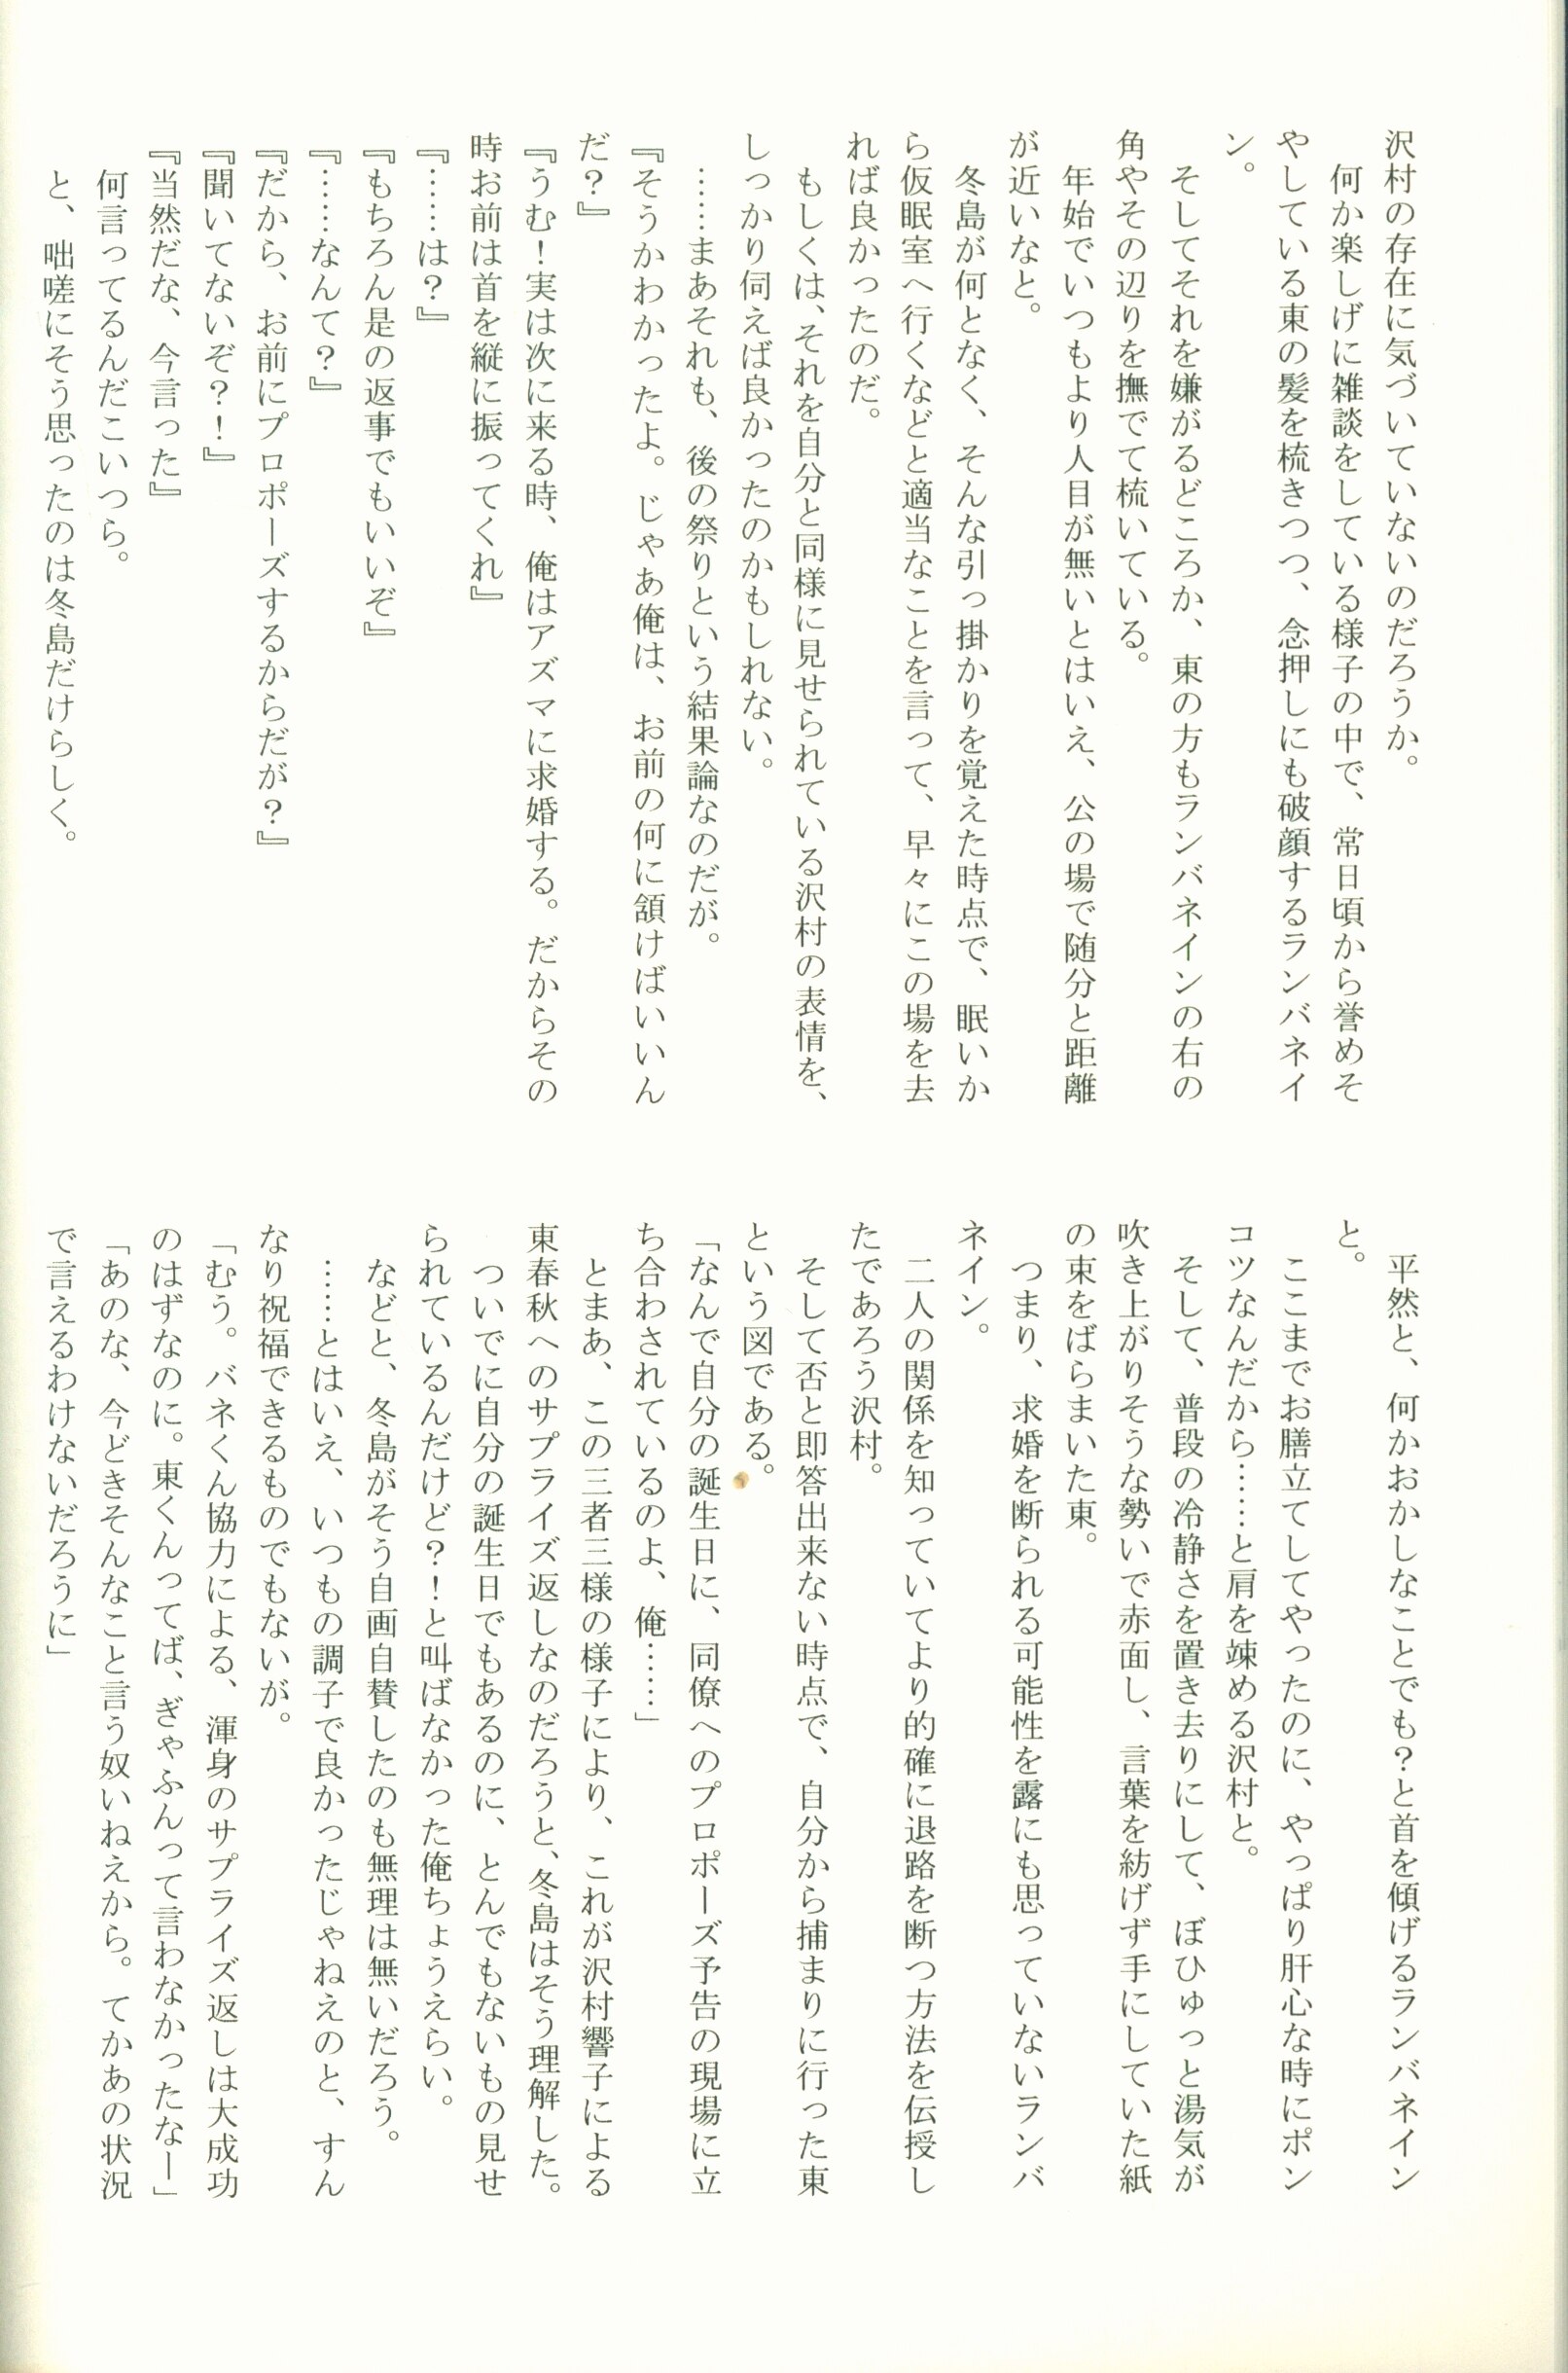 沢村の存在に気づいていないのだろうか。
何か楽しげに雑談をしている様子の中で、常日頃から誉めそ
やしている東の髪を梳きつつ、念押しにも破顔するランバネイ
ン。
そしてそれを嫌がるどころか、東の方もランバネインの右の
角やその辺りを撫でて梳いている。
年始でいつもより人目が無いとはいえ、公の場で随分と距離
が近いなと。
冬島が何となく、そんな引っ掛かりを覚えた時点で、眠いか
ら仮眠室へ行くなどと適当なことを言って、早々にこの場を去
れば良かったのだ。
もしくは、それを自分と同様に見せられている沢村の表情を、
しっかり伺えば良かったのかもしれない。
……まあそれも、後の祭りという結果論なのだが。
『そうかわかったよ。じゃあ俺は、お前の何に頷けばいいん
だ？』
『うむ！実は次に来る時、俺はアズマに求婚する。だからその
時お前は首を縦に振ってくれ』
『……は？』
『もちろん是の返事でもいいぞ』
『……なんて？』
『だから、お前にプロポーズするからだが？』
『聞いてないぞ？！』
『当然だな、今言った』
何言ってるんだこいつら。
と、咄嗟にそう思ったのは冬島だけらしく。
平然と、何かおかしなことでも？と首を傾げるランバネイン
と。
ここまでお膳立てしてやったのに、やっぱり肝心な時にポン
コツなんだから……と肩を竦める沢村と。
そして、普段の冷静さを置き去りにして、ぼひゅっと湯気が
吹き上がりそうな勢いで赤面し、言葉を紡げず手にしていた紙
の束をばらまいた東。
つまり、求婚を断られる可能性を露にも思っていないランバ
ネイン。
二人の関係を知っていてより的確に退路を断つ方法を伝授し
たであろう沢村。
そして否と即答出来ない時点で、自分から捕まりに行った東
という図である。
「なんで自分の誕生日に、同僚へのプロポーズ予告の現場に立
ち合わされているのよ、俺……」
とまあ、この三者三様の様子により、これが沢村響子による
東春秋へのサプライズ返しなのだろうと、冬島はそう理解した。
ついでに自分の誕生日でもあるのに、とんでもないもの見せ
られているんだけど？！と叫ばなかった俺ちょうえらい。
などと、冬島がそう自画自賛したのも無理は無いだろう。
……とはいえ、いつもの調子で良かったじゃねえのと、すん
なり祝福できるものでもないが。
「むう。バネくん協力による、渾身のサプライズ返しは大成功
のはずなのに。東くんってば、ぎゃふんって言わなかったなー」
「あのな、今どきそんなこと言う奴いねえから。てかあの状況
で言えるわけないだろうに」